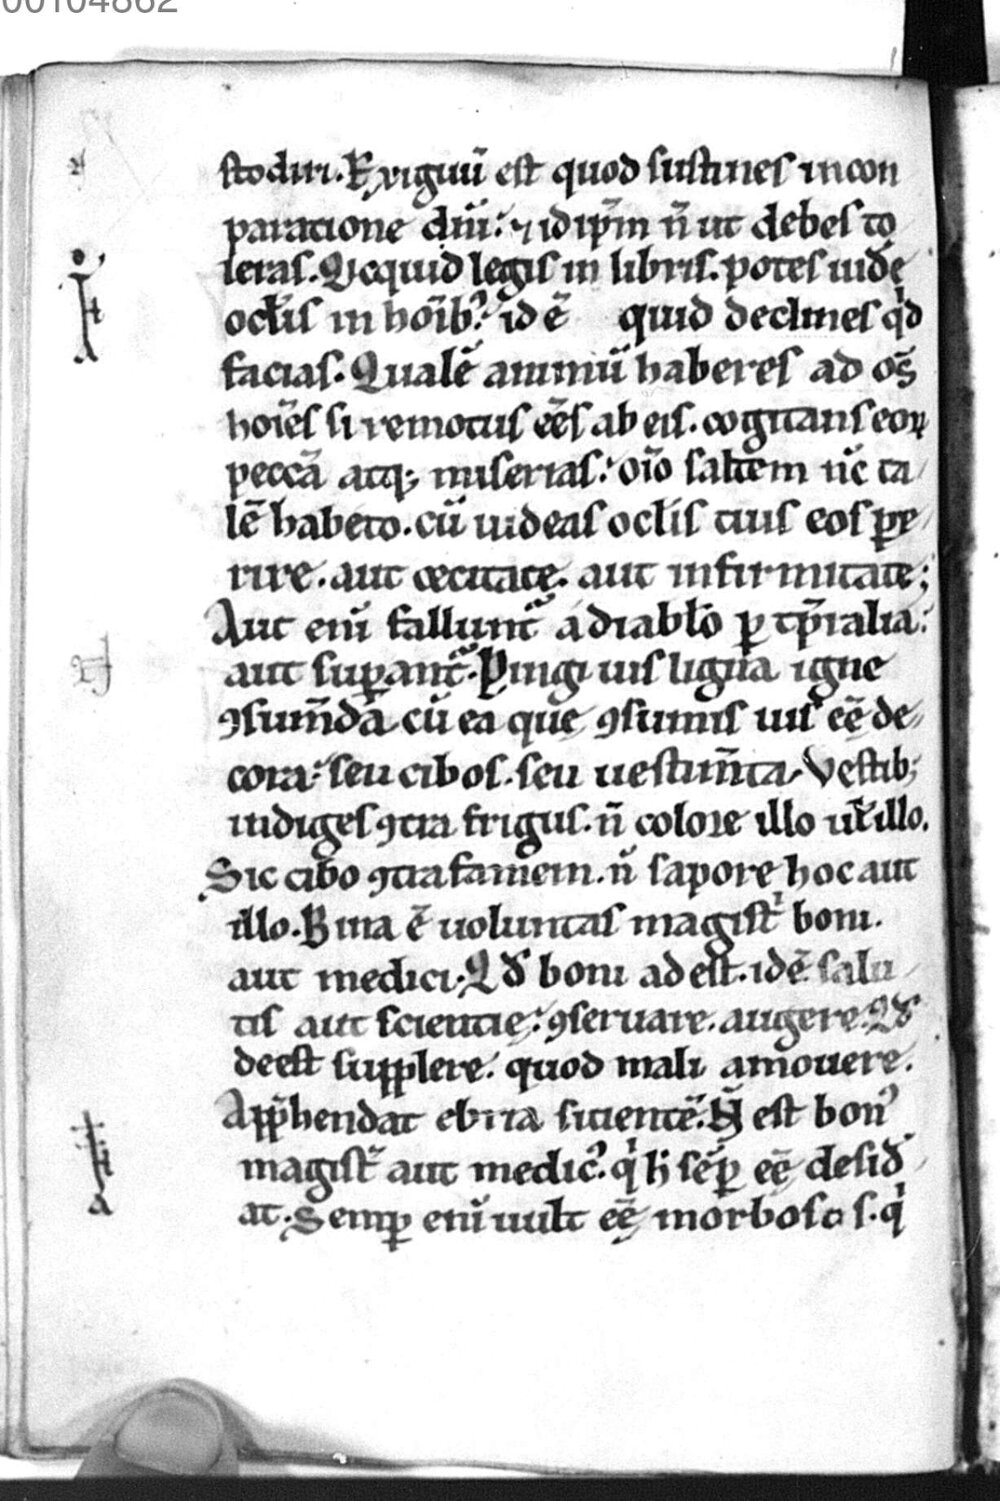 00104862
stodiri. Exiguū est quod sustines in con
paratione diui: ⁊ id ip̄m n̄ ut debes to
leras. Quicquid legis in libris. potes uidē
oculis in hoīb⁊ id ē quid declines qͥd
facias. Qualē animū haberes ad oēs
hoīes si remotus eēs ab eis. cogitans eoꝝ
peccā atq; miserias: oīo saltem nc̄ ta
lē habeto. cū uideas oclīs tuis eos ꝑe
rire. aut cecitate. aut infirmitate;
Aut eni fallunt᷑ a diabło ꝑ tp̄ralia:
aut suꝑant᷑. Pingi uis ligna igne
ꝯsum̄da cū ea que ꝯsumis uis eē de
cora: seu cibos. seu uestim̄ta. Vestib;
indiges ꝯtra frigus. n̄ colore illo uł illo.
Sic cibo ꝯtra famem. n̄ sapore hoc aut
illo. Bina ē uoluntas magistͥ boni.
aut medici. Qd boni adest. idē salu
tis aut scientie: ꝯseruare. augere. Qd
deest supplere. quod mali amouere.
App̄hendat ebria sitientē. N̄ est bonꝰ
magist᷑ aut medicꝰ. qͥ h̄ sēꝑ eē desid
at. Semꝑ eni uult eē morbosos. qͥ